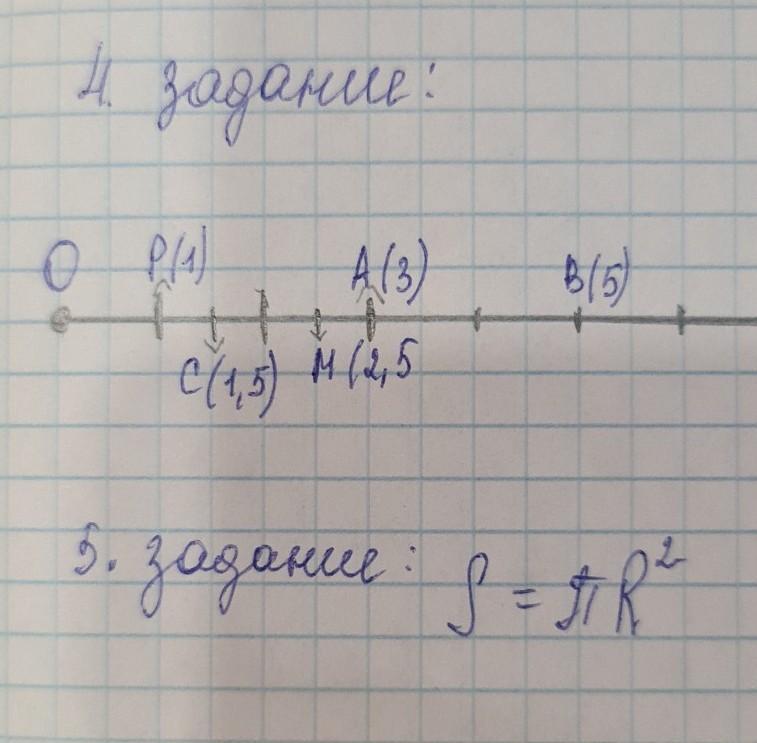 4. задание:
O P(1) A(3) B(5)
C(1,5) M(2,5
5. задание: S = πR²